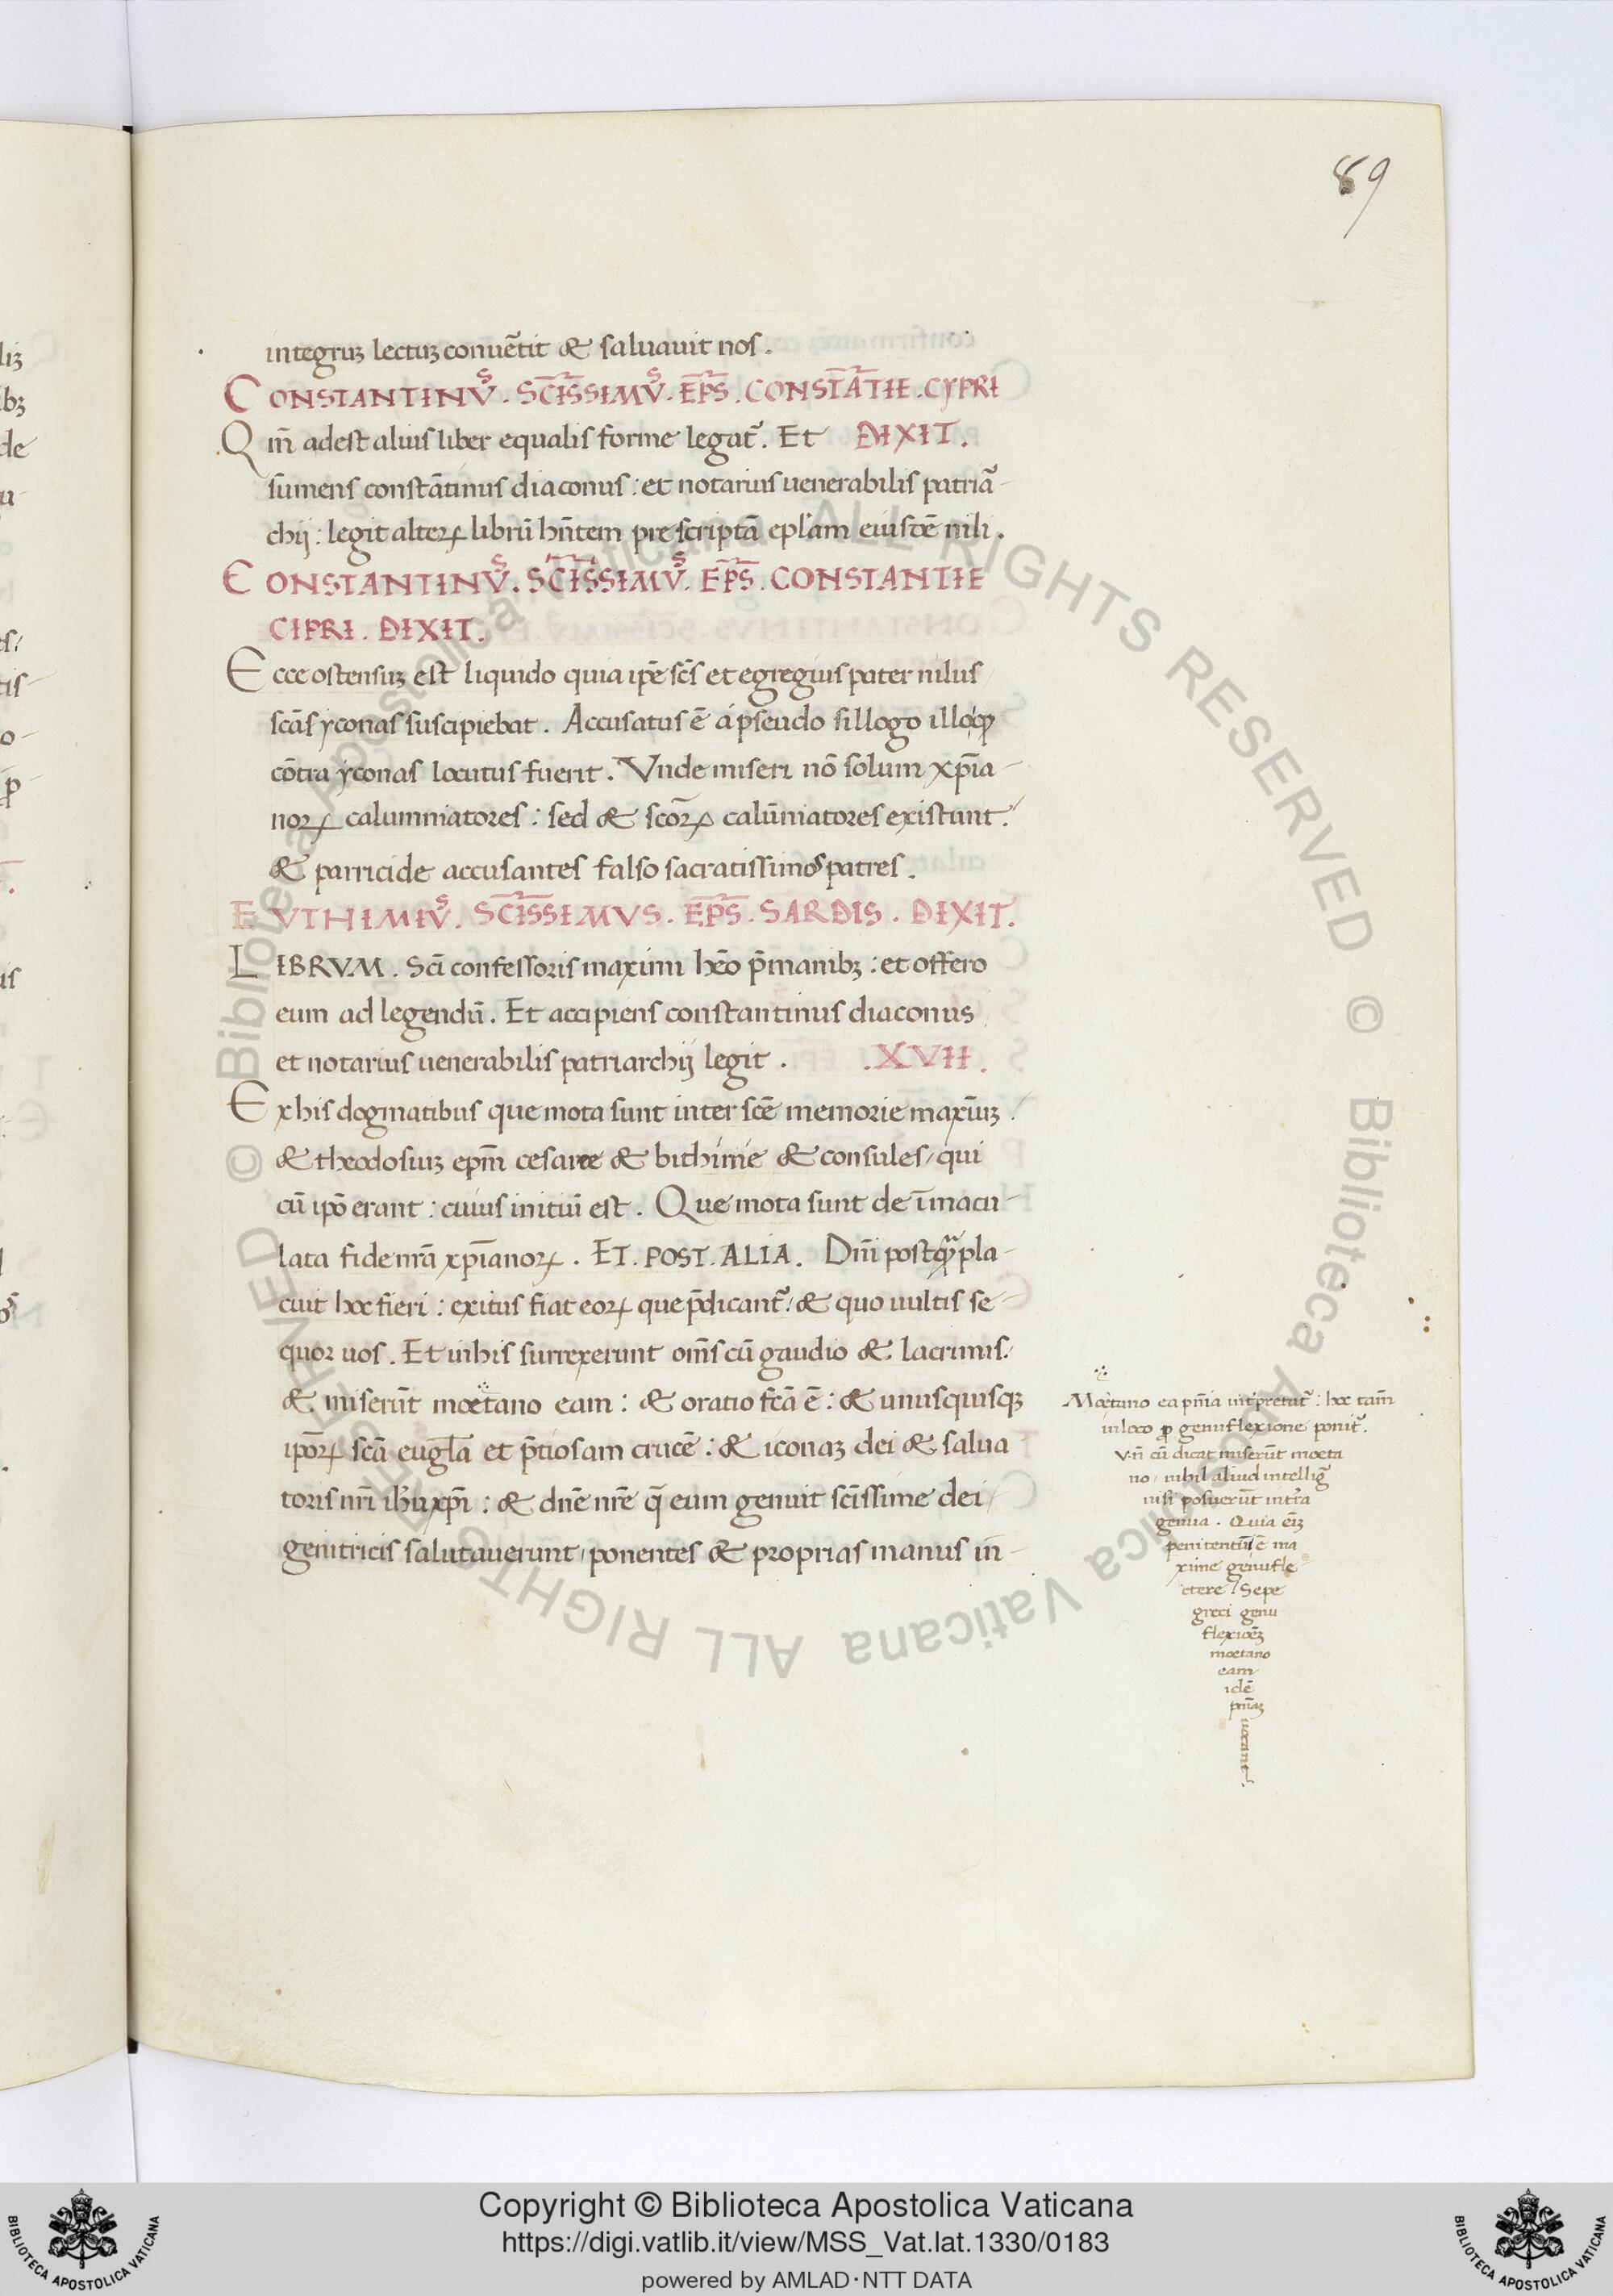 89
integruȝ lectuȝ conuẽtit & saluauit nos.
CONSTANTINVˢ. SCĪSSIMVˢ. EP̄S. CONSTĀTIE. CYPRI
Qm̄ adest alius liber equalis forme legat᷑. Et DIXIT.
sumens constātinus diaconus: et notarius uenerabilis patriā-
chij: legit alteꝝ librū hñtem prescriptā eplam eiusdē nili.
CONSTANTINVˢ. SCĪSSIMVˢ. EP̄S. CONSTANTIE
CIPRI. DIXIT.
Ecce ostensuȝ est liquido quia ip̄e sc̄s et egregius pater nilus
scās yconas suscipiebat. Accusatus ē a pseudo sillogo illo ꝙ
cōtra yconas locutus fuerit. Vnde miseri nō solum xp̄ia-
noꝝ calumniatores: sed & sc̄oꝝ calūniatores existunt.
& parricide accusantes falso sacratissimos patres.
EVTHIMIVˢ. SCĪSSIMVS. EP̄S. SARDIS. DIXIT.
LIBRVM. Sc̄i confessoris maximi hēo p̄ manibȝ: et offero
eum ad legendū. Et accipiens constantinus diaconus
et notarius uenerabilis patriarchij legit. .XVII.
Ex his dogmatibus que mota sunt inter sc̄e memorie maxīuȝ
& theodosiuȝ ep̄m cesaree & bithinie & consules, qui
cū ip̄o erant: cuius initiū est. Que mota sunt de īmacu-
lata fide nrā xp̄ianoꝝ. ET. POST. ALIA. Dn̄i postꝙ̄ pla-
cuit hoc fieri: exitus fiat eoꝝ que p̄dicant᷑. & quo uultis se-
quor uos. Et in his surrexerunt om̄s cū gaudio & lacrimis.
& miserūt moetano eam: & oratio fc̄a ē: & unusquisqȝ
ip̄oꝝ sc̄a euḡla et p̄tiosam crucē: & iconaȝ dei & salua
toris nr̄i ihu xp̄i: & dn̄e nr̄e q̄ eum genuit sc̄issime dei
genitricis salutauerunt, ponentes & proprias manus in-
Moetano ea pn̄ia int̄pretat᷑: hoc tam̄
in loco ꝓ genuflexione ponit᷑.
Vn̄ cū dicat miserūt moeta
no, nihil aliud intellig̃
nisi posuerūt intra
genua. Quia eīȝ
penitentiū ē ma
xime genufle-
ctere, Sepe
greci genu
flexiōeȝ
moetano
eam
idē
pn̄iaȝ
uocant.
Copyright © Biblioteca Apostolica Vaticana
https://digi.vatlib.it/view/MSS_Vat.lat.1330/0183
powered by AMLAD·NTT DATA
BIBLIOTECA APOSTOLICA VATICANA
BIBLIOTECA APOSTOLICA VATICANA
© Biblioteca Apostolica Vaticana ALL RIGHTS RESERVED © Biblioteca Apostolica Vaticana ALL RIGHTS RESERVED